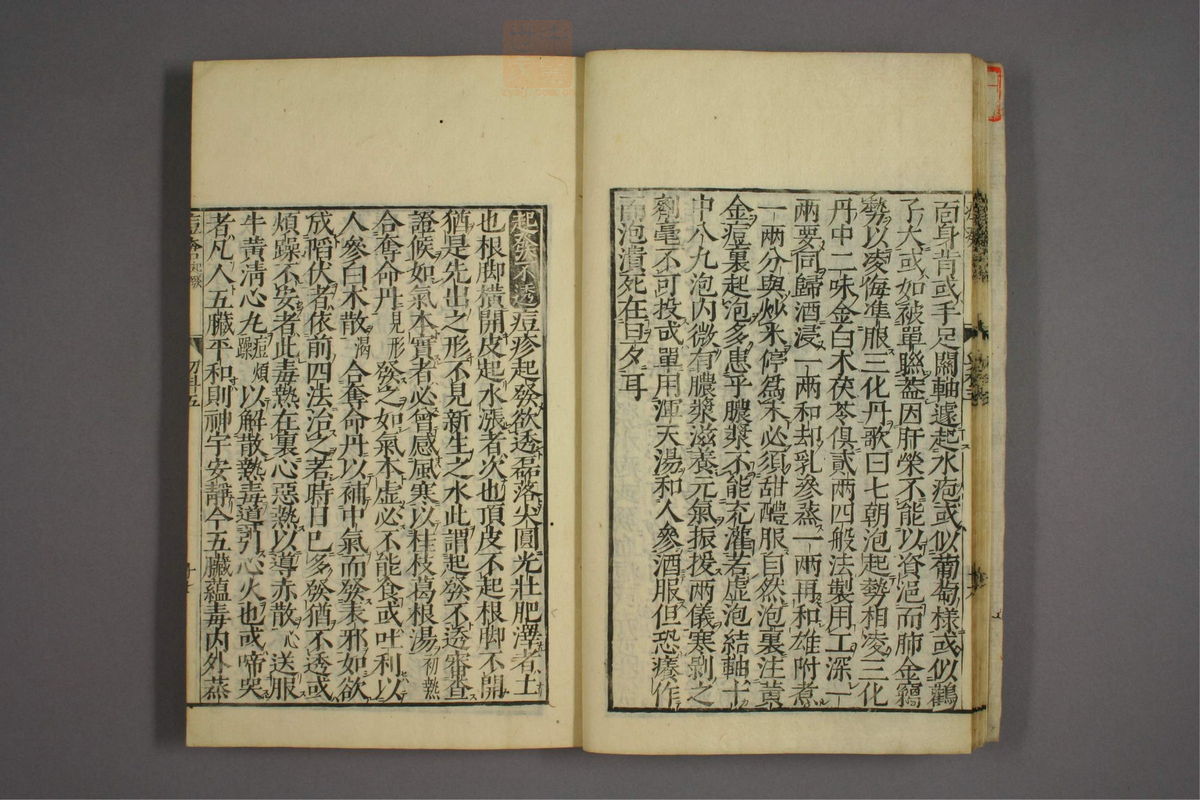 百身背或手足關軸遽起水疱或似葡萄樣或似鶴
子大或如被單聮葢因肝榮不能以資浥而肺金竊
勢以凌侮準服三化丹歌曰七朝泡起勢相凌三化
丹中二味金白朮茯苓俱貳兩四般法製用工深一
兩要同歸酒浸一兩和却乳滲蒸一兩再和雄附煮
一兩分與炒米停爲末必須甜醴服自然泡裏注黃
金痘裏起泡多患乎膿漿不能充灌若虛泡結軸十
中八九泡內微有膿漿滋養元氣振援兩儀寒剝之
劑毫不可投或單用渾天湯和人參酒服但恐癢作
而泡潰死在旦夕耳
起發不透痘疹起發欲透磊落尖圓光壯肥澤者土
也根脚橫開皮起水漲者次也頂皮不起根脚不開
猶是先出之形不見新生之水此謂起發不透審查
證候如氣本實者必曾感風寒以桂枝葛根湯初熱
合奪命丹見形發之如氣本虛必不能食或吐利以
人參白朮散渴合奪命丹以補中氣而發表邪如欲
成稻伏者依前四法治之若時日已多發猶不透或
煩躁不安者此毒熱在裏心惡熱以導赤散心送服
牛黃淸心丸痘煩躁以解散熱毒道引心火也或啼哭
者凡人五臟平和則神宇安靜今五臟蘊毒內外蒸